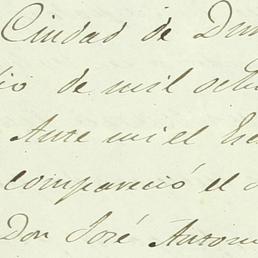 Ciudad de Dur
io de mil octu
Ante mi el Es
compareció el
Don José Antoni